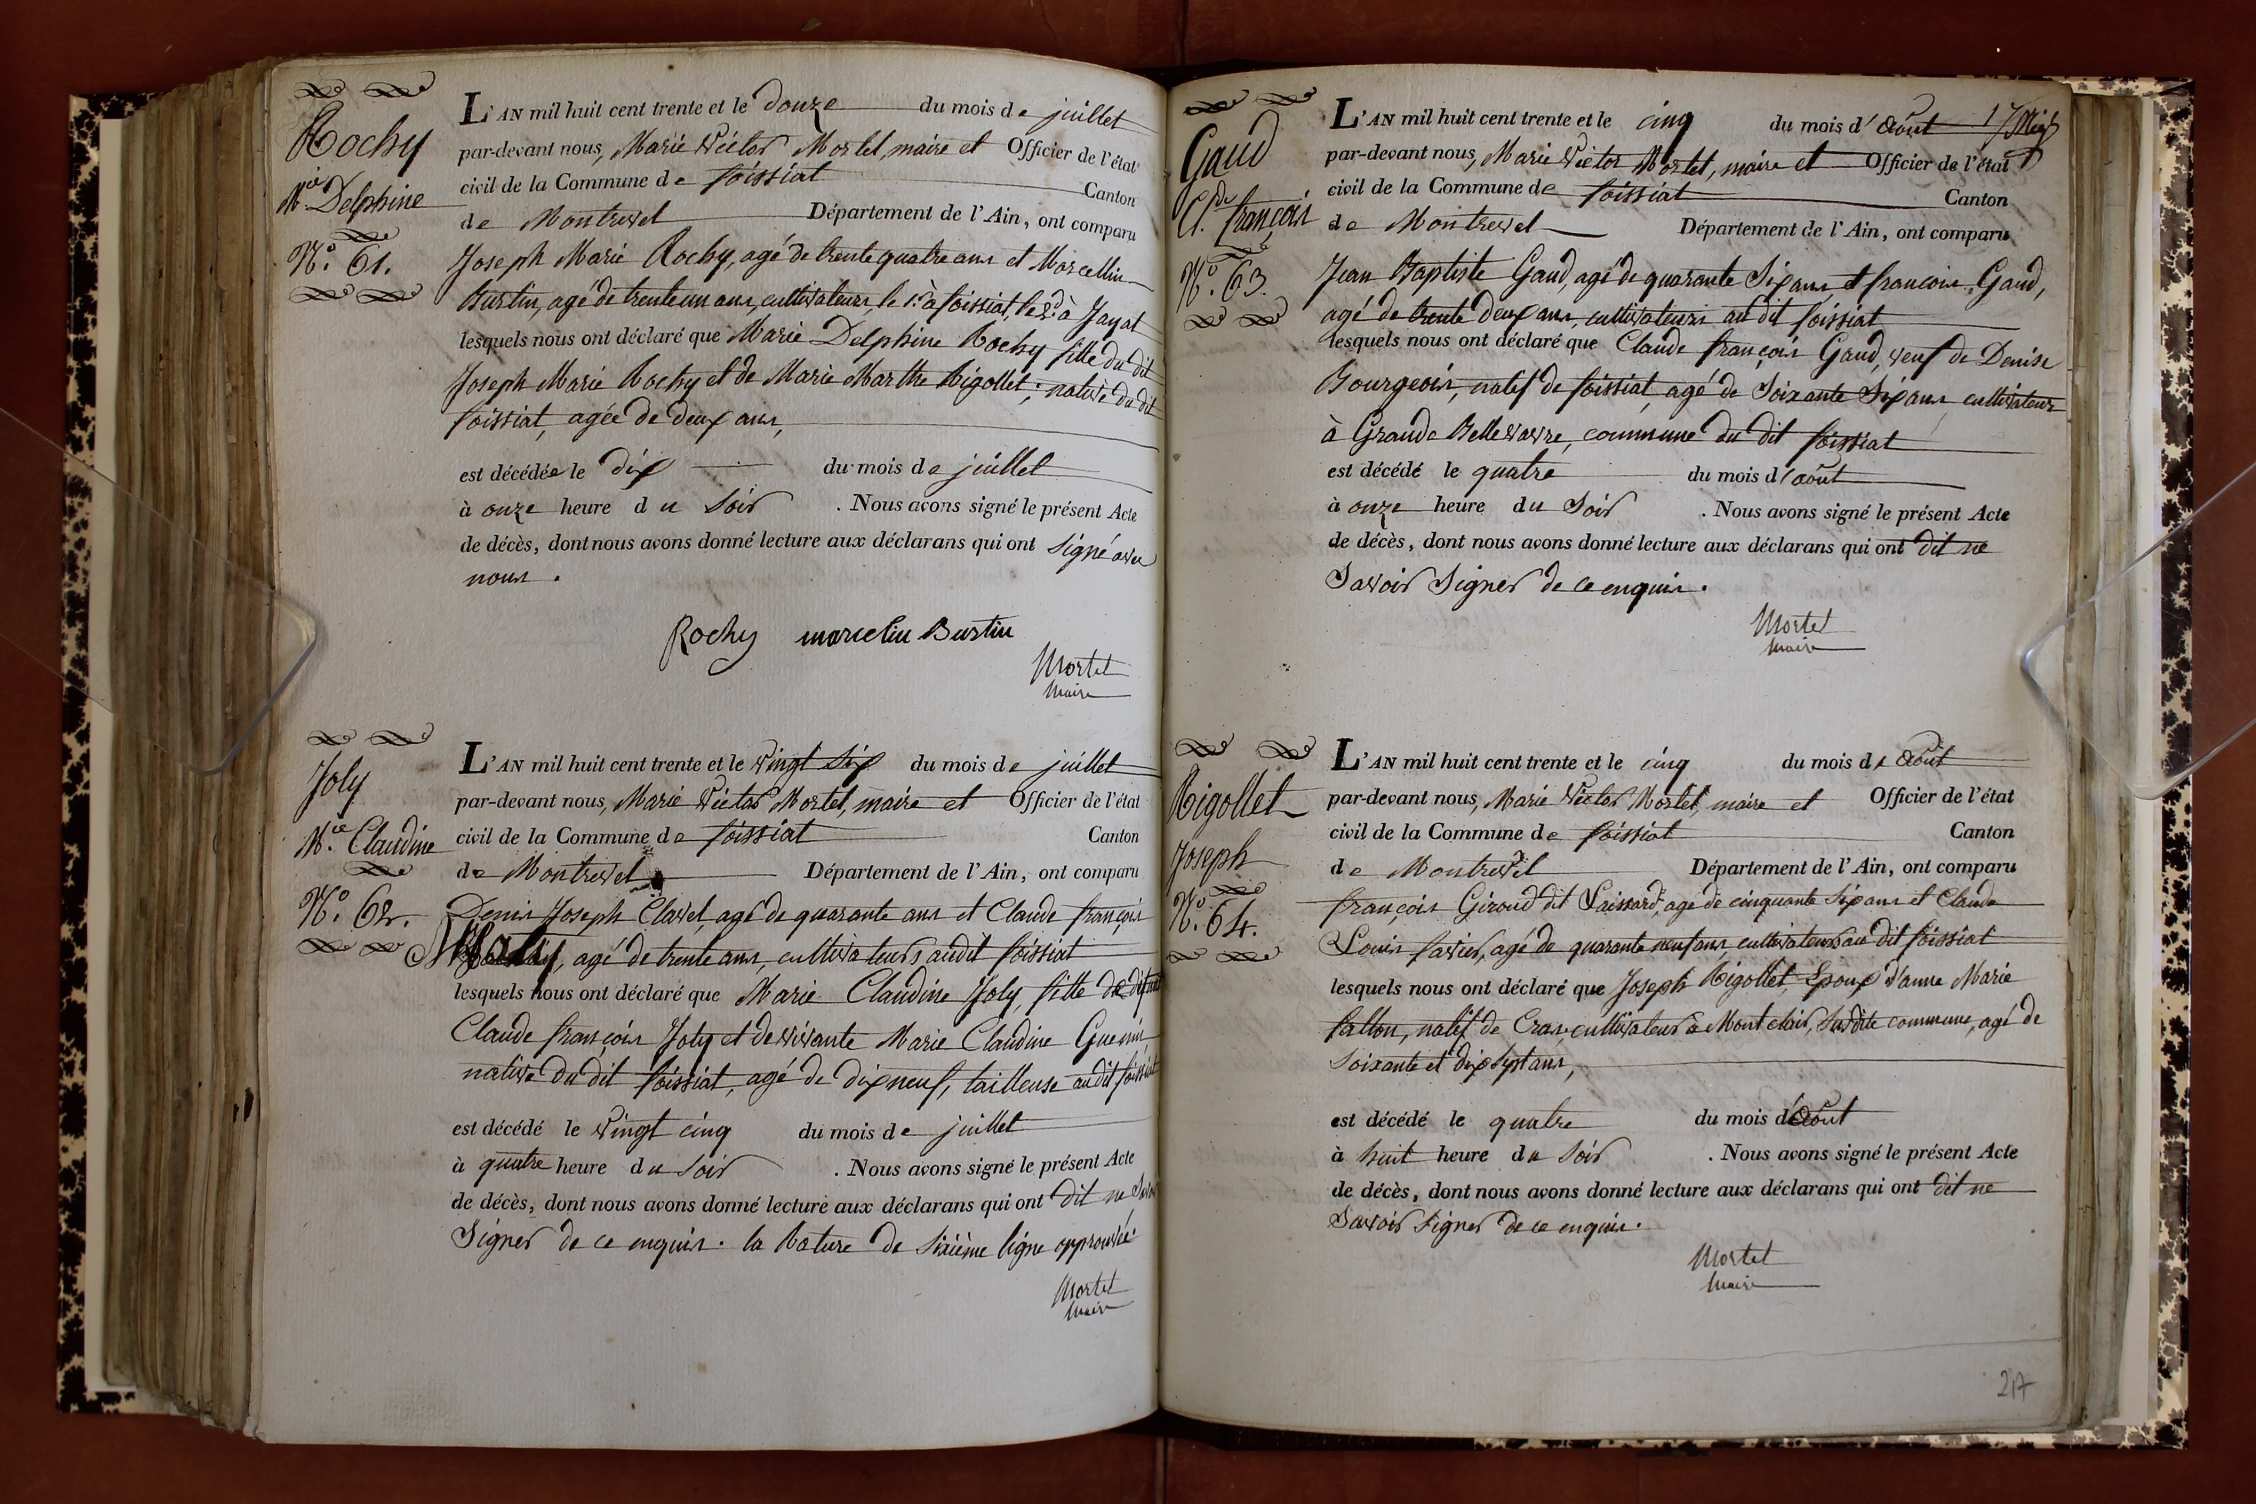 Rochy
Mie Delphine
No. 61.
L'AN mil huit cent trente et le douze du mois de juillet
par-devant nous, Marie Victor Mortel, maire et Officier de l'état
civil de la Commune de foissiat Canton
de Montrevel Département de l'Ain, ont comparu
Joseph Marie Rochy, agé de trente quatre ans et Marcellin
Burtin, agé de trente un ans, cultivateurs, le 1er à foissiat, le 2d à Jayat
lesquels nous ont déclaré que Marie Delphine Rochy fille du dit
Joseph Marie Rochy et de Marie Marthe Rigollet; native du dit
foissiat, agée de deux ans,
est décédée le dix du mois de juillet
à onze heure du soir . Nous avons signé le présent Acte
de décès, dont nous avons donné lecture aux déclarans qui ont signé avec
nous.
Rochy marcelin Burtin
Mortel
maire
Joly
Mie. Claudine
No. 62.
L'AN mil huit cent trente et le vingt six du mois de juillet
par-devant nous, Marie Victor Mortel, maire et Officier de l'état
civil de la Commune de foissiat Canton
de Montrevel Département de l'Ain, ont comparu
Denis Joseph Clavel, agé de quarante ans et Claude françois
agé de trente ans, cultivateurs audit foissiat
lesquels nous ont déclaré que Marie Claudine Joly, fille de défunt
Claude françois Joly et de vivante Marie Claudine Guenin
native du dit foissiat, agé de dix neuf, tailleuse au dit foissiat
est décédé le vingt cinq du mois de juillet
à quatre heure du soir . Nous avons signé le présent Acte
de décès, dont nous avons donné lecture aux déclarans qui ont dit ne savoir
signer de ce enquis. la Rature de sixième ligne approuvée.
Mortel
maire
Gaud
Cde. françois
No. 63.
L'AN mil huit cent trente et le cinq du mois d'août
par-devant nous, Marie Victor Mortel, maire et Officier de l'état
civil de la Commune de foissiat Canton
de Montrevel Département de l'Ain, ont comparu
Jean Baptiste Gaud, agé de quarante six ans et françois Gaud,
agé de trente deux ans, cultivateurs au dit foissiat
lesquels nous ont déclaré que Claude françois Gaud, veuf de Denise
Bourgeois, natif de foissiat, agé de soixante six ans cultivateur
à Grande Bellevavre, commune du dit foissiat
est décédé le quatre du mois d'août
à onze heure du soir . Nous avons signé le présent Acte
de décès, dont nous avons donné lecture aux déclarans qui ont dit ne
savoir signer de ce enquis.
Mortel
maire
Rigollet
Joseph
No. 64.
L'AN mil huit cent trente et le cinq du mois d'août
par-devant nous, Marie Victor Mortel, maire et Officier de l'état
civil de la Commune de foissiat Canton
de Montrevel Département de l'Ain, ont comparu
françois Giroud dit Laissard, agé de cinquante six ans et Claude
Louis favier, agé de quarante neuf ans, cultivateurs au dit foissiat
lesquels nous ont déclaré que Joseph Rigollet, Epoux d'anne Marie
fallon, natif de Cras, cultivateur à Mont clair, susdite commune, agé de
soixante et dix sept ans,
est décédé le quatre du mois d'août
à huit heure du soir . Nous avons signé le présent Acte
de décès, dont nous avons donné lecture aux déclarans qui ont dit ne
savoir signer de ce enquis.
Mortel
maire
217